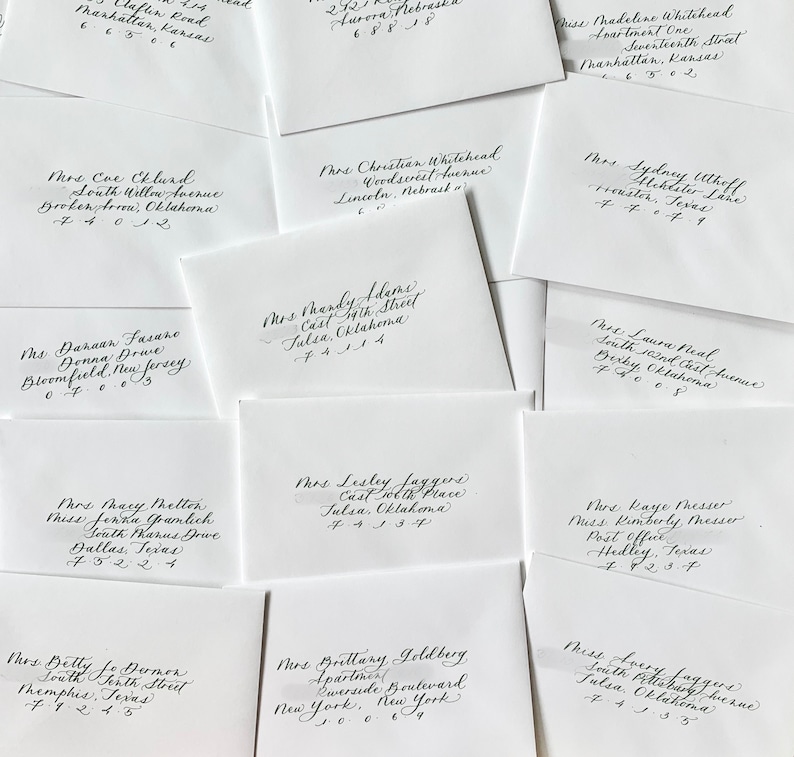 Claflin Road
Manhattan, Kansas
6·6·5·0·6
Aurora, Nebraska
6·8·8·1·8
Miss Madeline Whitehead
Apartment One
Seventeenth Street
Manhattan, Kansas
6·6·5·0·2
Mrs Cue Eklund
South Willow Avenue
Broken Arrow, Oklahoma
7·4·0·1·2
Mrs Christian Whitehead
Woodscrest Avenue
Lincoln, Nebraska
Mrs. Sydney Uthoff
Lane
Houston, Texas
7·7·0·7·9
Mrs Mandy Adams
East 19th Street
Tulsa, Oklahoma
7·4·1·1·4
Ms Danaan Fasano
Donna Drive
Bloomfield, New Jersey
0·7·0·0·3
Mrs Laura Neal
South 102nd East Avenue
Bixby, Oklahoma
7·4·0·0·8
Mrs Macy Melton
Miss Jenna Gramlich
South Drive
Dallas, Texas
7·5·2·2·4
Mrs Lesley Jaggers
East 106th Place
Tulsa, Oklahoma
7·4·1·3·7
Mrs Kaye Messer
Miss Kimberly Messer
Post Office
Hedley, Texas
7·9·2·3·7
Mrs. Betty Jo Dermon
South Tenth Street
Memphis, Texas
7·9·2·4·5
Mrs Brittany Goldberg
Apartment
Riverside Boulevard
New York, New York
1·0·0·6·9
Miss Avery Jaggers
South Pittsburg Avenue
Tulsa, Oklahoma
7·4·1·3·5